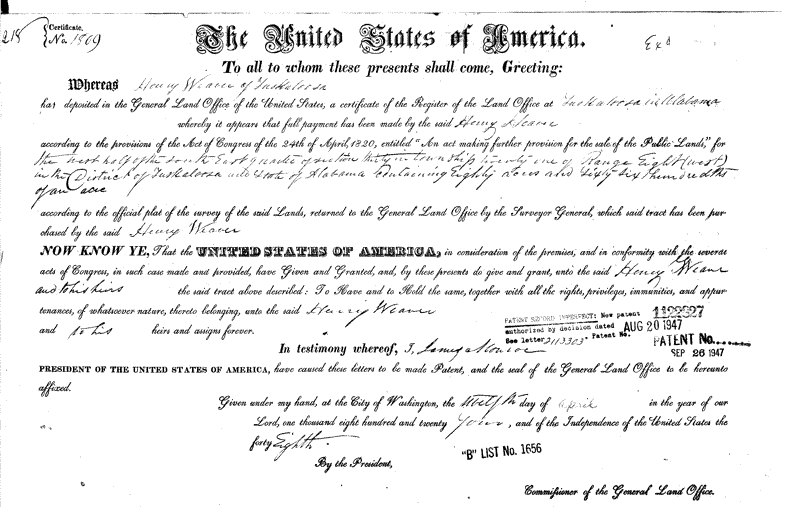 218 Certificate,
No. 1809
The United States of America.
Exd
To all to whom these presents shall come, Greeting:
Whereas Henry Weaver of Tuskaloosa
has deposited in the General Land Office of the United States, a certificate of the Register of the Land Office at Tuskaloosa in Alabama
whereby it appears that full payment has been made by the said Henry Weaver
according to the provisions of the Act of Congress of the 24th of April, 1820, entitled "An act making further provision for the sale of the Public Lands," for
the west half of the south East quarter of section thirty in township twenty one of Range Eight (west)
in the District of Tuskaloosa and State of Alabama Containing Eighty acres and sixty six hundredths
of an acre
according to the official plat of the survey of the said Lands, returned to the General Land Office by the Surveyor General, which said tract has been pur-
chased by the said Henry Weaver
NOW KNOW YE, That the UNITED STATES OF AMERICA, in consideration of the premises, and in conformity with the several
acts of Congress, in such case made and provided, have Given and Granted, and, by these presents do give and grant, unto the said Henry Weaver
and to his heirs the said tract above described: To Have and to Hold the same, together with all the rights, privileges, immunities, and appur-
tenances, of whatsoever nature, thereto belonging, unto the said Henry Weaver
and to his heirs and assigns forever.
PATENT RECORD IMPERFECT: New patent 1122627
authorized by decision dated AUG 20 1947
See letter 2113303 Patent No.
PATENT No.
SEP 26 1947
In testimony whereof, I, James Monroe
PRESIDENT OF THE UNITED STATES OF AMERICA, have caused these letters to be made Patent, and the seal of the General Land Office to be hereunto
affixed.
Given under my hand, at the City of Washington, the twelfth day of April in the year of our
Lord, one thousand eight hundred and twenty four, and of the Independence of the United States the
forty Eighth.
"B" LIST No. 1656
By the President,
Commissioner of the General Land Office.